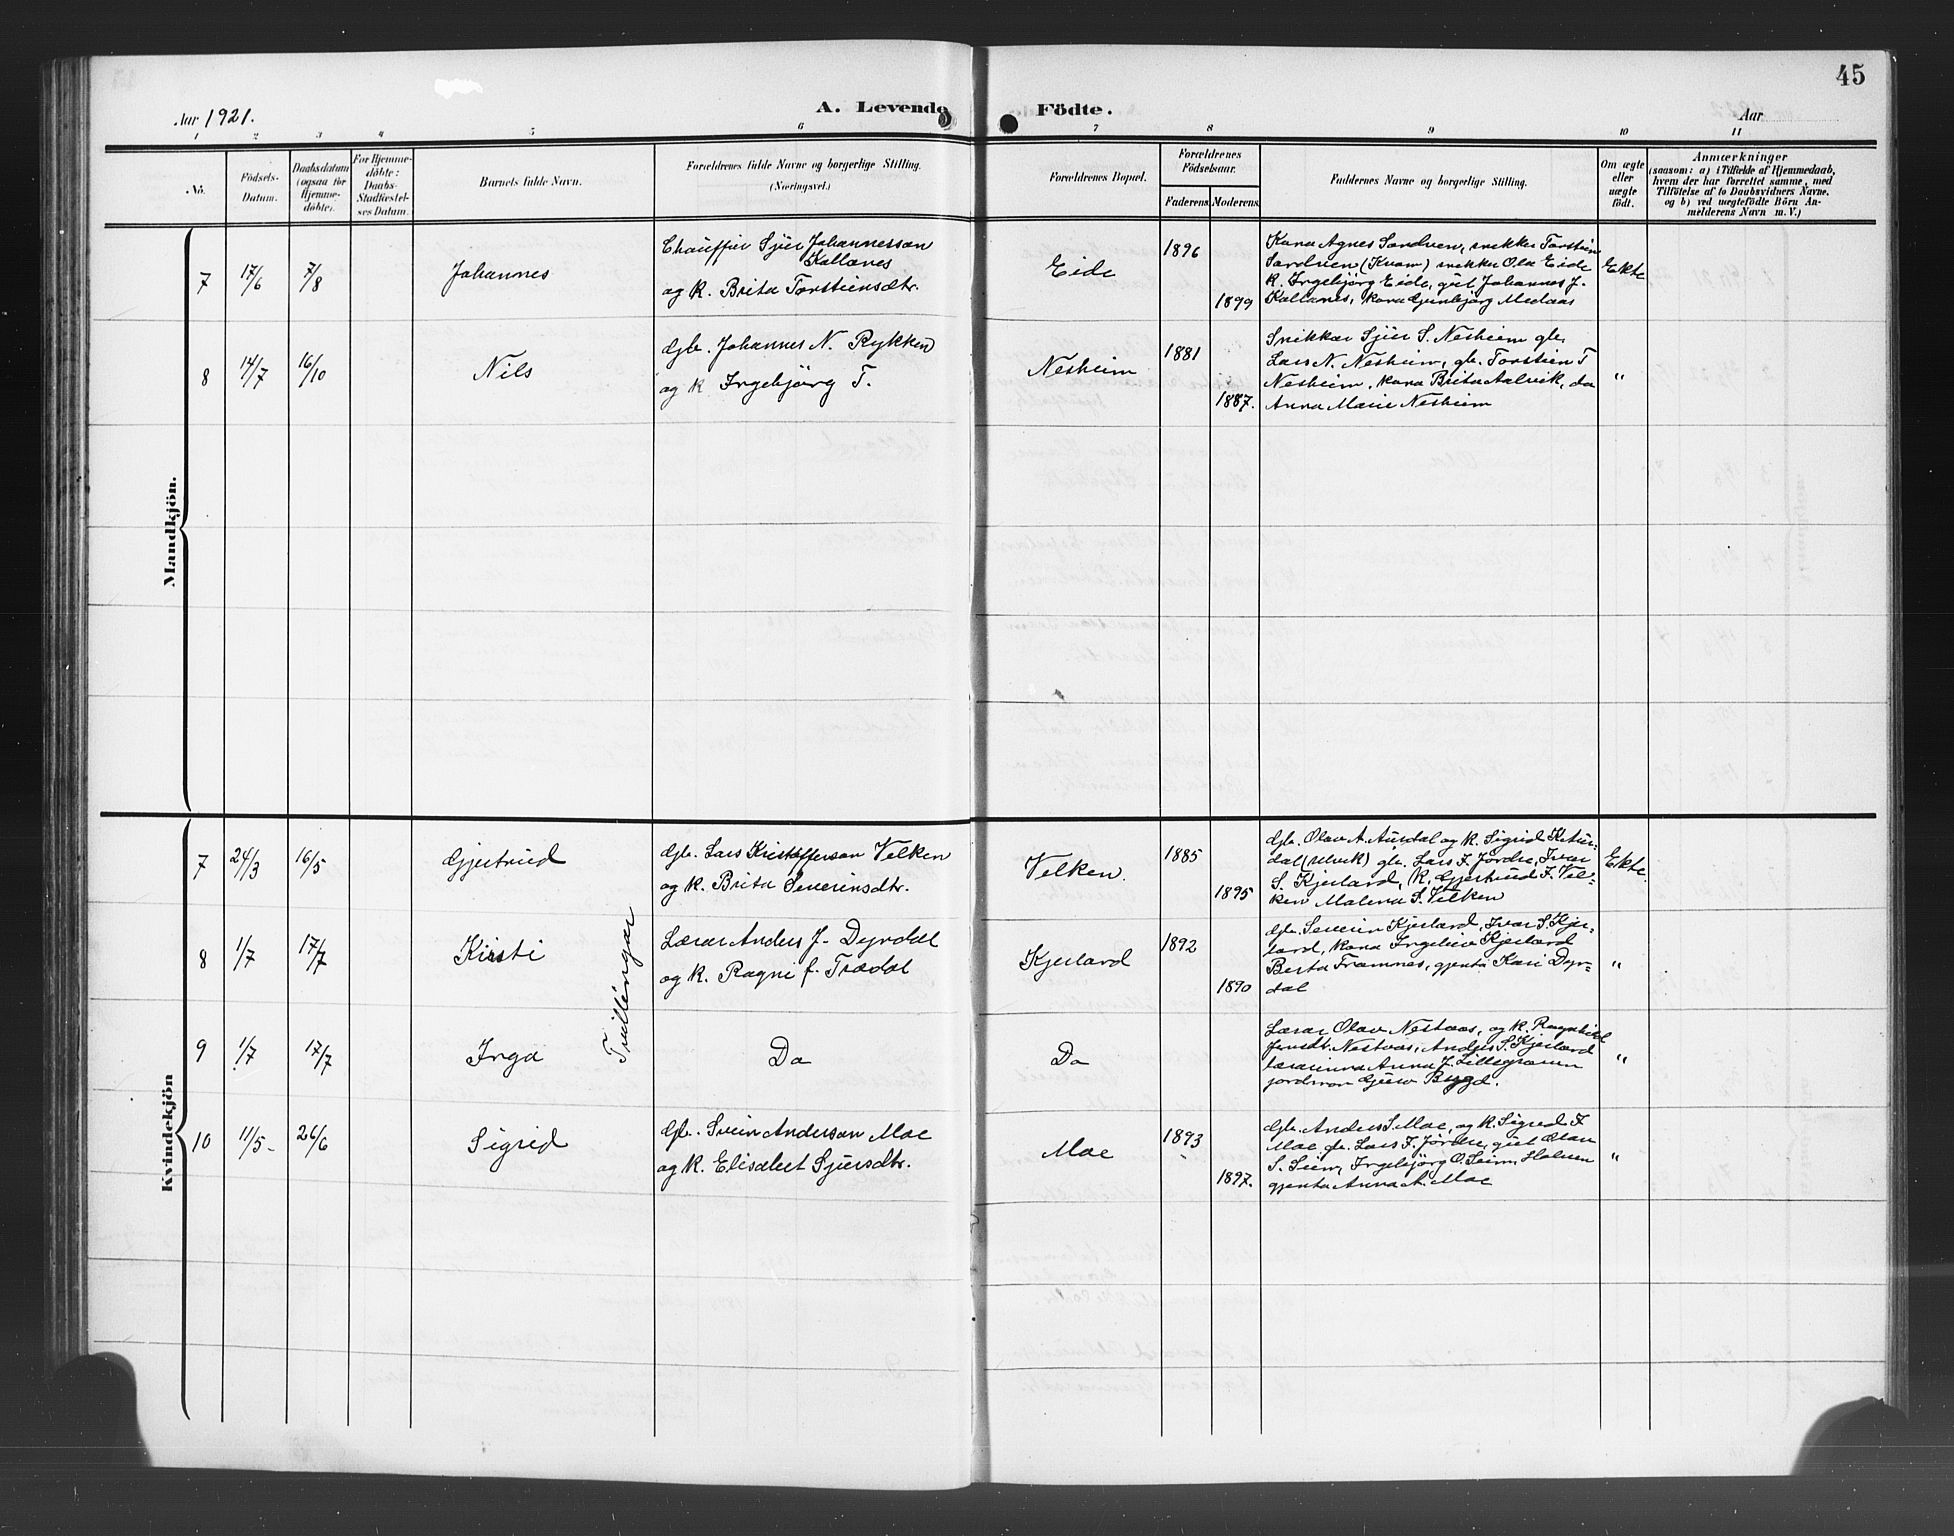 45
Aar 1921.
A. Levende Födte.
Aar
1 2 3 4 5 6 7 8 9 10 11
No.
Födsels-
Datum.
Daabsdatum
(ogsaa for
Hjemme-
döbte).
For Hjemme-
döbte:
Daabs-
Stadfæstel-
ses Datum.
Barnets fulde Navn.
Forældrenes fulde Navne og borgerlige Stilling.
(Næringsvei.)
Forældrenes Bopæl.
Forældrenes
Födselsaar.
Faderens. Moderens.
Faddernes Navne og borgerlige Stilling.
Om ægte
eller
uægte
födt.
Anmærkninger
(saasom: a) i Tilfælde af Hjemmedaab,
hvem der har forrettet samme, med
Tilföielse af to Daabsvidners Navne,
og b) ved uægtefödte Börn An-
melderens Navn m. V.)
Mandkjön.
7 17/6 7/8 Johannes
Chauffür Sjur Johannesson
Kollanes
og k. Brita Torsteinsdtr.
Eide
1896
1899
Kona Agnes Sandven, snikkar Torstein
Sandven (Kvam) snikkar Ola Eide
k. Ingebjörg Eide, gut Johannes J.
Kollanes, kona Gunbjörg Medaas
Ekte
8 14/7 16/10 Nils
Gb. Johannes N. Rykken
og k Ingebjörg T.
Nesheim
1881
1887.
Snikkar Sjur S. Nesheim gb.
Lars N. Nesheim, gb. Torstein T
Nesheim, kona Brita Aalvik, do
Anna Marie Nesheim
"
Kvindekjön
7 24/3 16/5 Gjertrud
Gb. Lars Kristofferson Velken
og k. Brita Severinsdtr.
Velken.
1885
1895
Gb. Olav A. Aurdal og k. Sigrid K. Aur-
dal (Ulvik) gb. Lars F. Jordre, Ivar
S. Kjerland, k. Gjertrud F. Vel-
ken Malena S. Velken
Ekte.
8 1/7 17/7 Kirsti
Tvillingar
Lærar Anders J. Dyrdal
og k. Ragni f. Trædal
Kjerland
1892
1890
Gb. Severin Kjerland, Ivar S Kjer-
land, kona Ingeleiv Kjerland
Berta Framnes, gjenta Kari Dyr-
dal
"
9 1/7 17/7 Inga
Do
Do
Lærar Olav Nestaas, og k. Ragnhild
Nestaas, Anders S. Kjerland
lærarinna Anna J. Lillegraven
jordmor Bygd.
"
10 11/5 26/6 Sigrid
Gb. Svein Anderson Moe
og k. Elisabet Sjursdtr.
Moe
1893
1897.
Gb. Anders S. Moe, og k. Sigrid F
Moe gb. Lars F. Jordre, gut Olav
S. Seim, Ingebjörg O. Seim,
gjenta Anna A. Moe
"